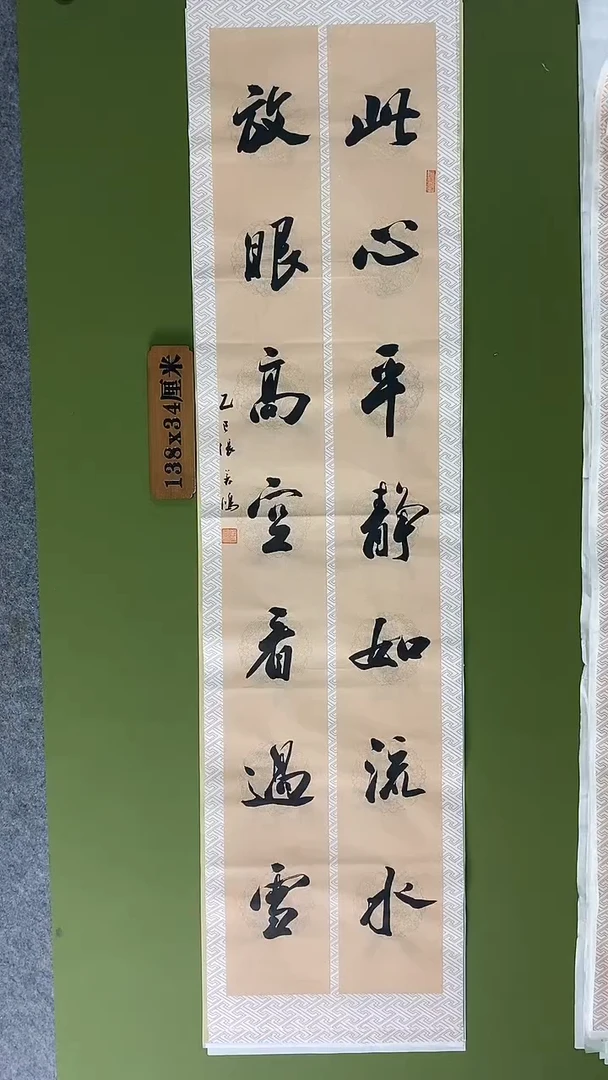 此心平静如流水
放眼高空看過雲
乙巳張鴻
138x34厘米